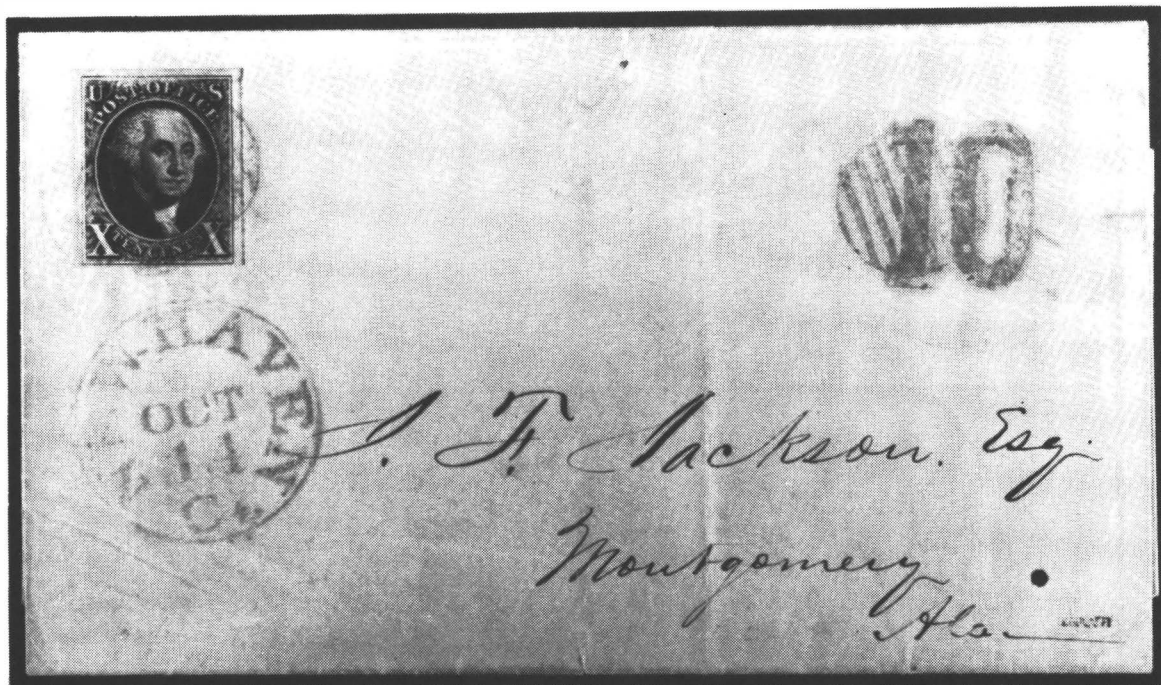 U S
POST OFFICE
X TEN CENTS X
10
N. HAVEN
OCT
11
Ct.
S. F. Jackson. Esq.
Montgomery
Ala.